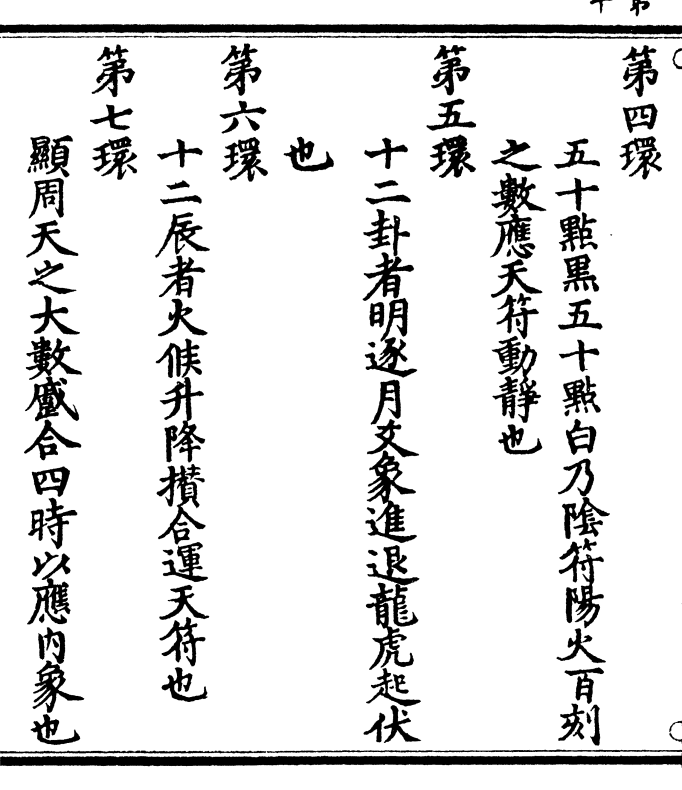 第四環
五十點黑五十點白乃陰符陽火百刻
之數應天符動靜也
第五環
十二卦者明逐月爻象進退龍虎起伏
也
第六環
十二辰者火候升降攅合運天符也
第七環
顯周天之大數盛合四時以應內象也